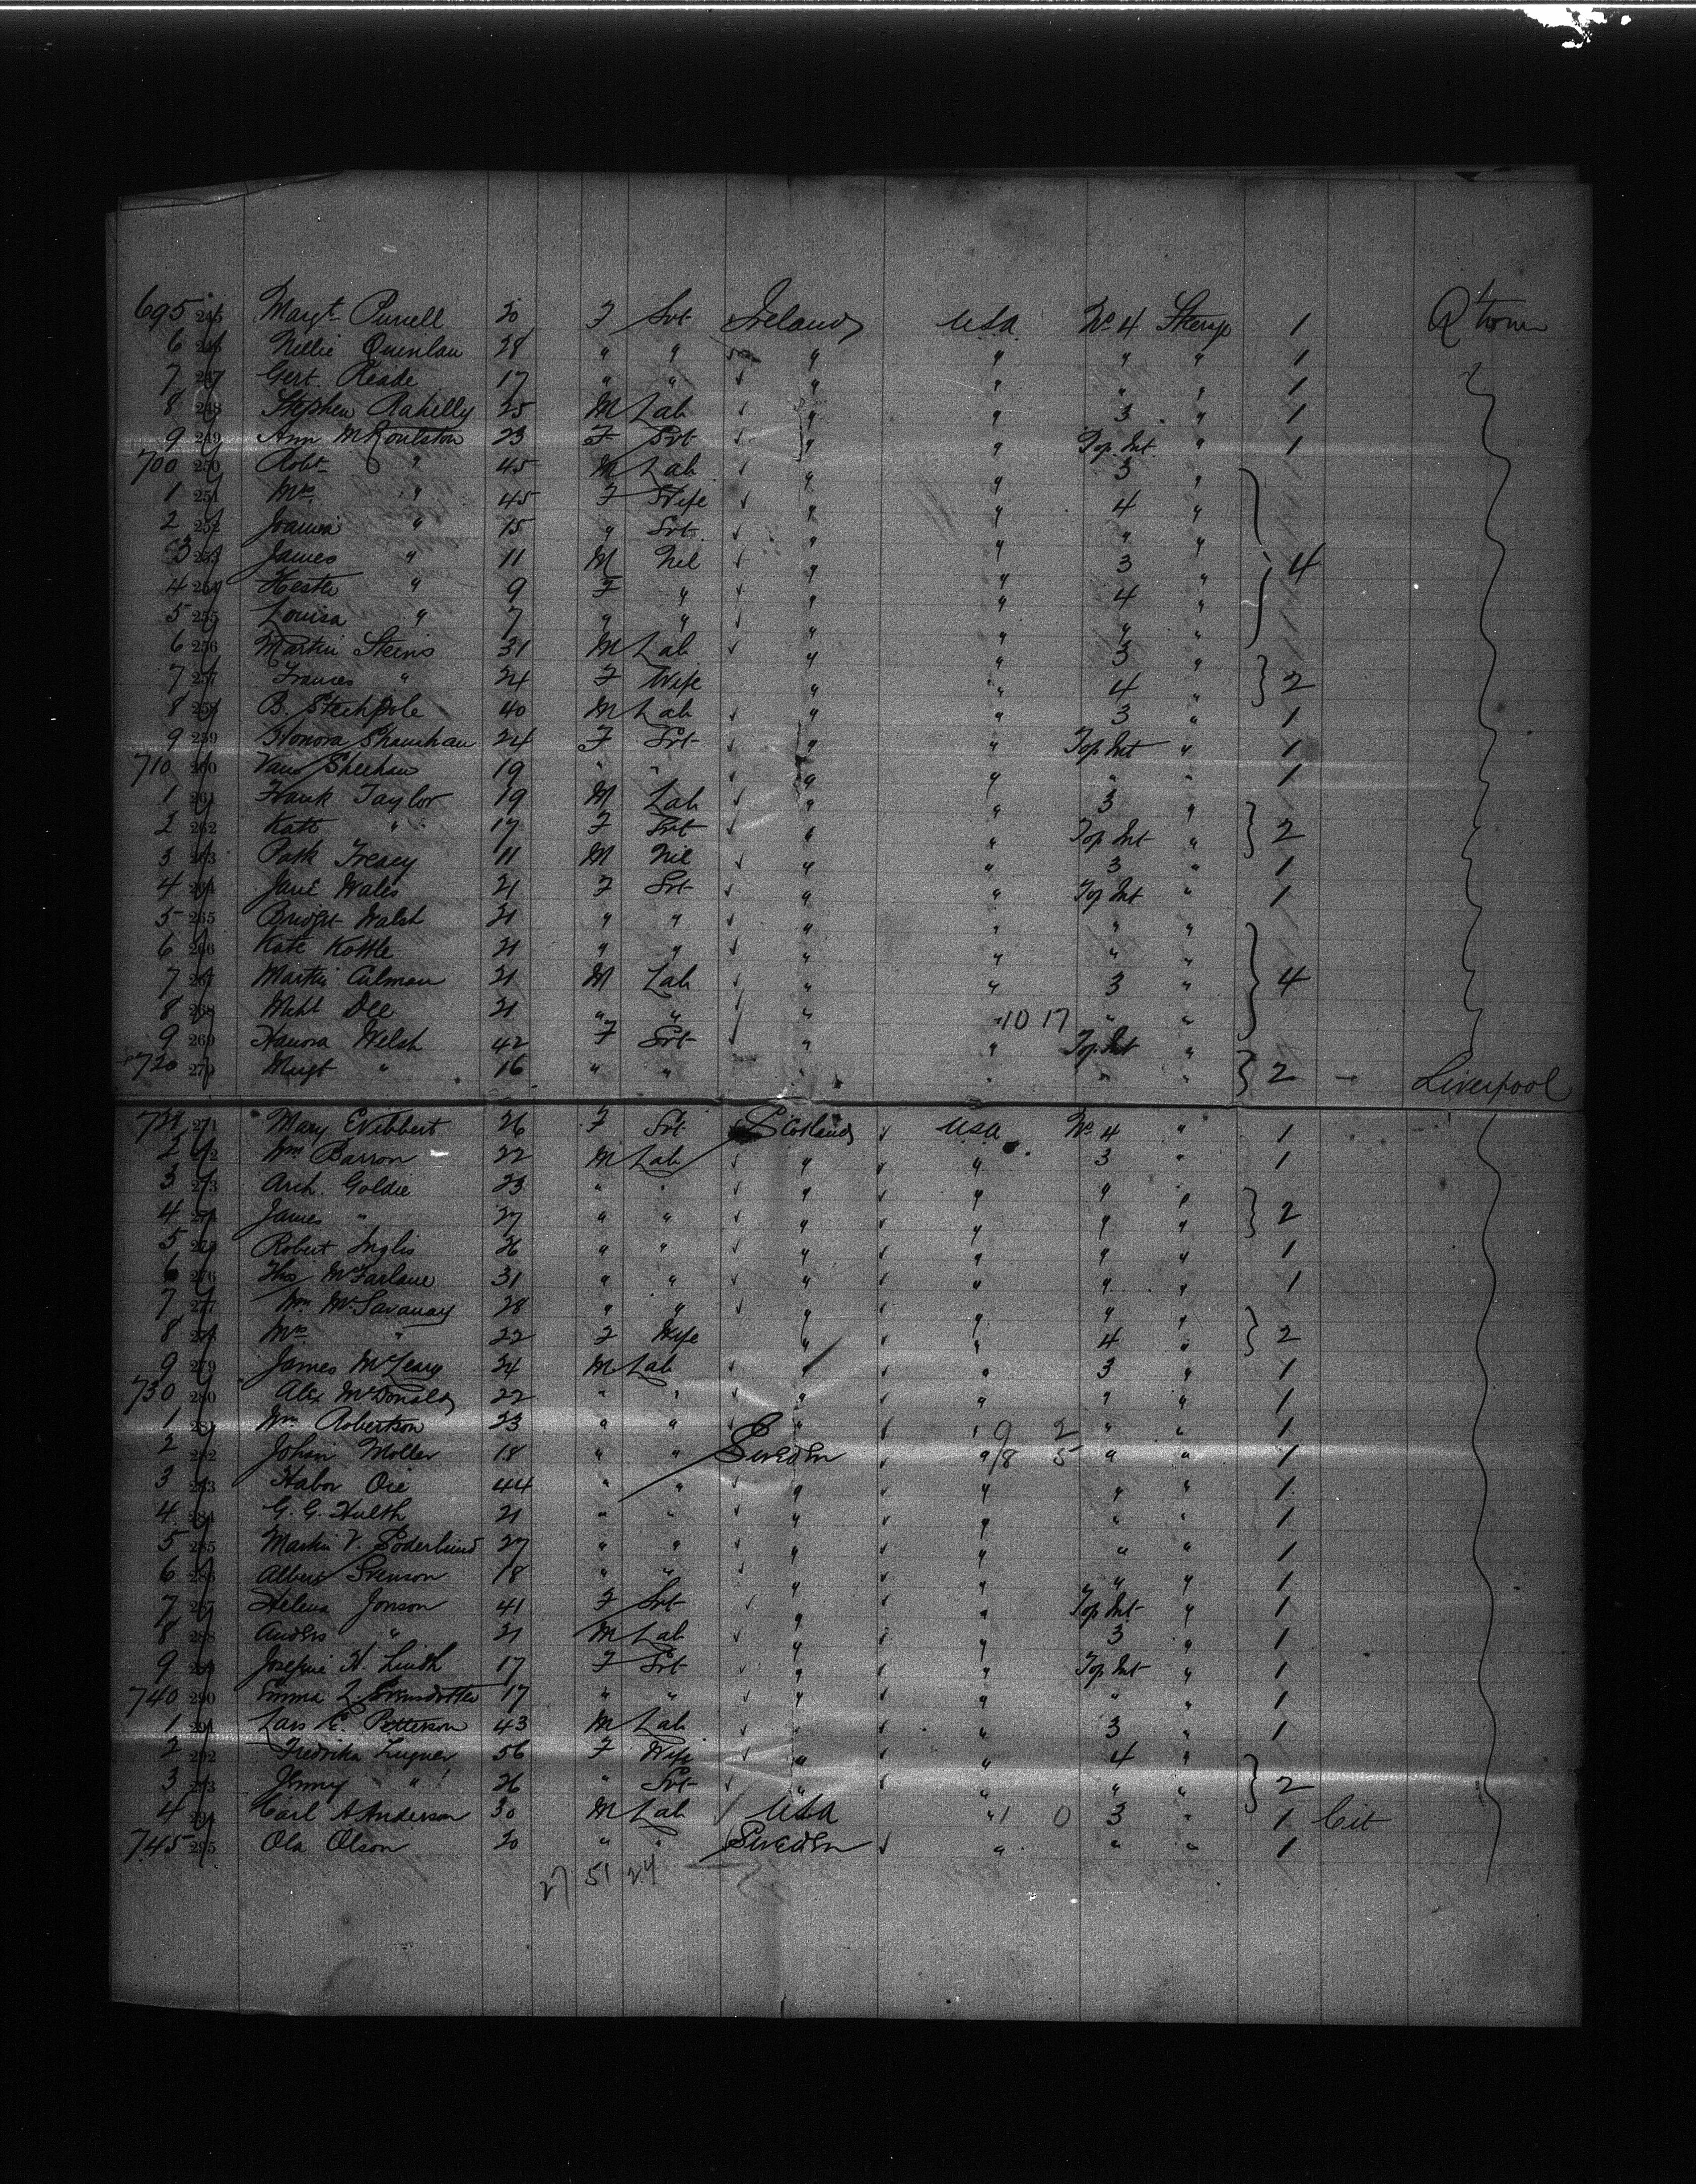 695 245 Margt Purcell 20 F Svt Ireland USA No 4 Steerage 1 Q'town
6 246 Nellie Quinlan 28 " " " " " " 1
7 247 Gert. Reade 17 " " " " " " 1
8 248 Stephen Rahilly 25 M Lab " " 3 " 1
9 249 Ann McRoulston 23 F Svt " " Top Int " 1
700 250 Robt " 45 M Lab " " 3 "
1 251 Mrs " 45 F Wife " " 4 "
2 252 Joanna " 15 " Svt " " " "
3 253 James " 11 M Nil " " 3 " 4
4 254 Hester " 9 F " " " 4 "
5 255 Louisa " 7 " " " " " "
6 256 Martin Steins 31 M Lab " " 3 "
7 257 Frances " 24 F Wife " " 4 " 2
8 258 B. Stechpole 40 M Lab " " 3 " 1
9 259 Honora Shanahan 24 F Svt " " Top Int " 1
710 260 Sheehan 19 " " " " " " 1
1 261 Frank Taylor 19 M Lab " " 3 "
2 262 Kate " 17 F Svt " " Top Int " 2
3 263 Patk Treacy 11 M Nil " " 3 " 1
4 264 Jane Wales 21 F Svt " " Top Int " 1
5 265 Bridget Walsh 21 " " " " " "
6 266 Kate Kottle 21 " " " " " "
7 267 Martin Culman 21 M Lab " " 3 " 4
8 268 Michl Dee 21 " " " 10 17 " "
9 269 Hanora Welsh 42 F Svt " " Top Int "
720 270 Margt " 16 " " " " " " 2 — Liverpool
721 271 Mary E Vibbert 26 F Svt Scotland USA No 4 " 1
2 272 Wm Barron 22 M Lab " " 3 " 1
3 273 Arch. Goldie 23 " " " " " "
4 274 James " 27 " " " " " " 2
5 275 Robert Inglis 26 " " " " " " 1
6 276 Thos McFarlane 31 " " " " " " 1
7 277 Wm 28 " " " " " "
8 278 Mrs " 22 F Wife " " 4 " 2
9 279 James McLeary 24 M Lab " " 3 " 1
730 280 Alex McDonald 22 " " " " " " 1
1 281 Wm Robertson 23 " " " 9 2 " " 1
2 282 Johan Moller 18 " " Sweden " 8 5 " " 1
3 283 Habor Oie 44 " " " " " " 1
4 284 G. G. Hulth 21 " " " " " " 1
5 285 Martin V. Soderlund 27 " " " " " " 1
6 286 Albert Svenson 18 " " " " " " 1
7 287 Helena Jonson 41 F Svt " " Top Int " 1
8 288 Anders " 21 M Lab " " 3 " 1
9 289 Josefine H. Lindh 17 F Svt " " Top Int " 1
740 290 Emma L. Svensdotter 17 " " " " " " 1
1 291 Lars E. Petterson 43 M Lab " " 3 " 1
2 292 Fredrika Lugner 56 F Wife " " 4 "
3 293 Jenny " 26 " Svt " " " " 2
4 294 Carl A Anderson 30 M Lab USA " 1 0 3 " 1 Cit
745 295 Ola Olson 20 " " Sweden " " " 1
27 51 24